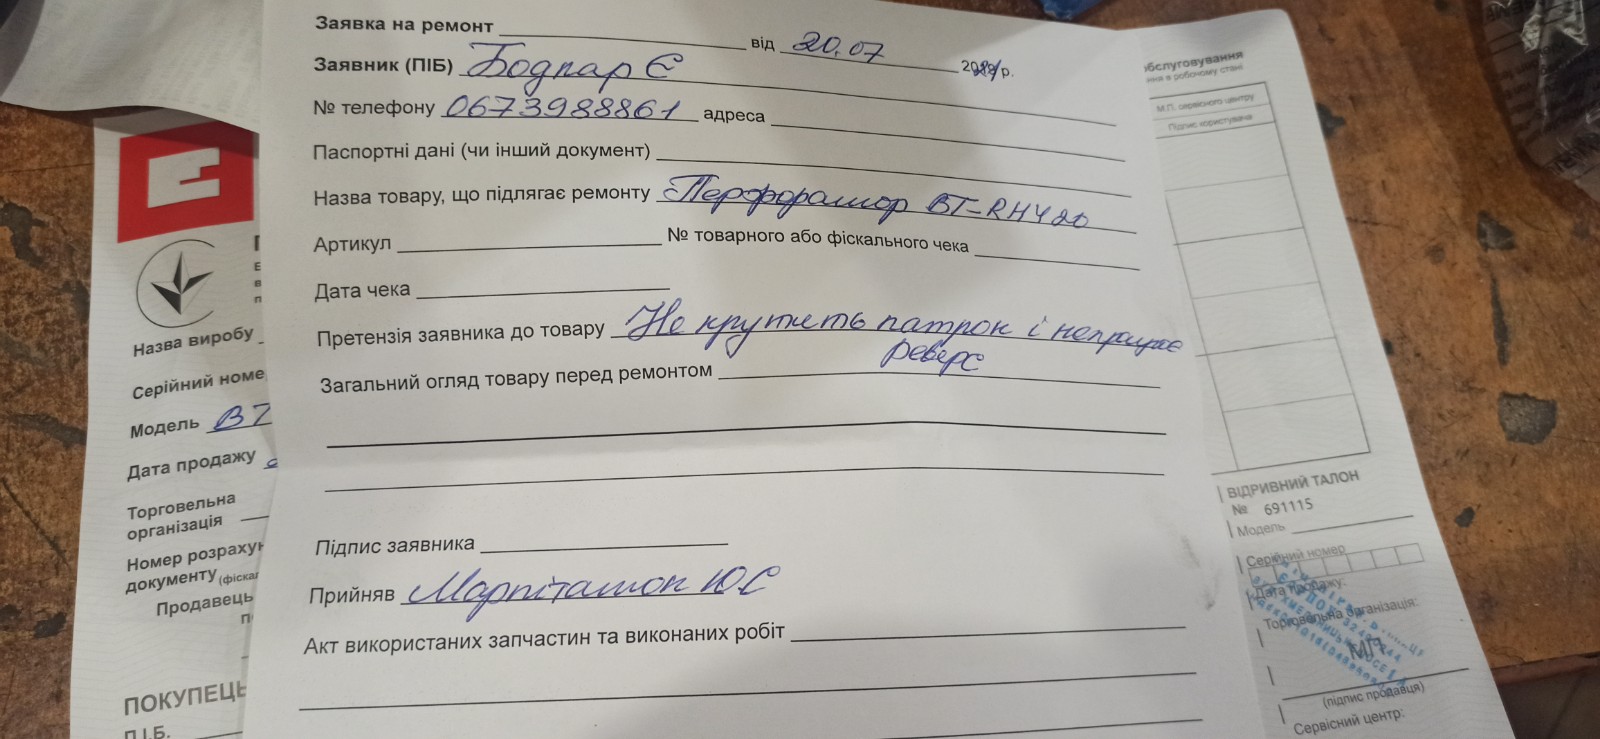 Заявка на ремонт від 20.07 р.
Заявник (ПІБ) Боднар Є
№ телефону 0673988861 адреса
Паспортні дані (чи інший документ)
Назва товару, що підлягає ремонту Перфоратор BT-RH420
Артикул № товарного або фіскального чека
Дата чека
Претензія заявника до товару Не крутить патрон і непрацює
реверс
Загальний огляд товару перед ремонтом
Підпис заявника
Прийняв ЮС
Акт використаних запчастин та виконаних робіт
Назва виробу
Серійний номе
Модель
Дата продажу
Торговельна
організація
Номер розрахун
документу (фіскал
Продавець
ПОКУПЕЦЬ
П.І.Б.
обслуговування
М.П. сервісного центру
Підпис користувача
ВІДРИВНИЙ ТАЛОН
№ 691115
Модель
Серійний номер
Дата продажу:
Торговельна організація:
МП
(підпис продавця)
Сервісний центр: